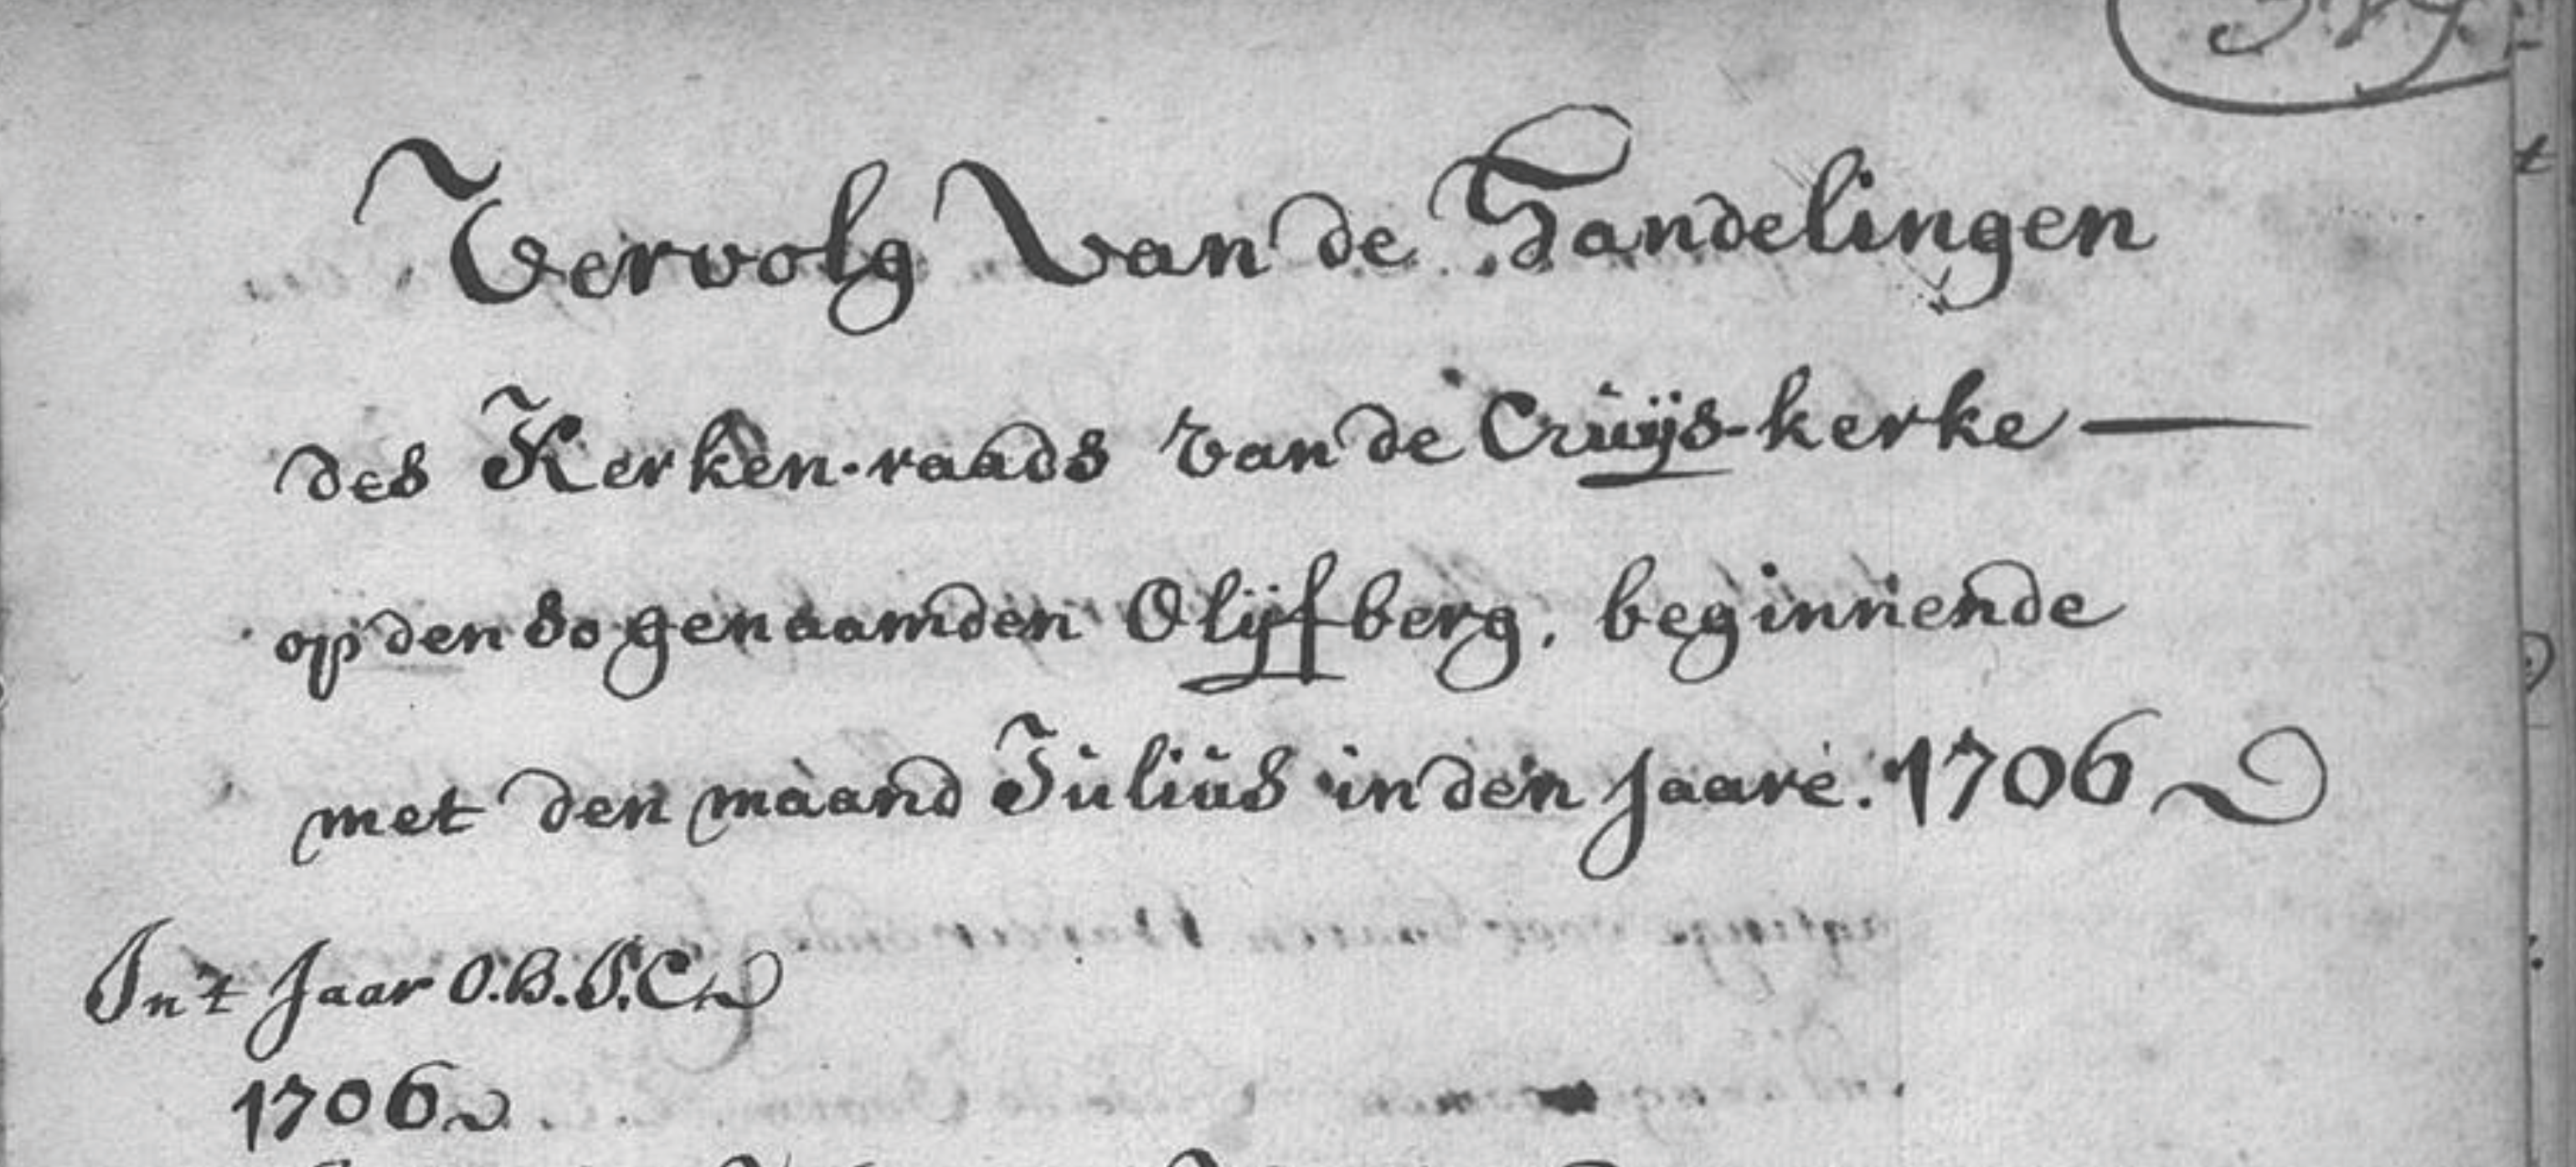 Vervolg van de Handelingen
des Kerken-raads van de Cruijs-kerke —
op den so genaamden Olijfberg, beginnende
met den maand Julius in den Jaare. 1706
In't Jaar O.H.J.C.
1706